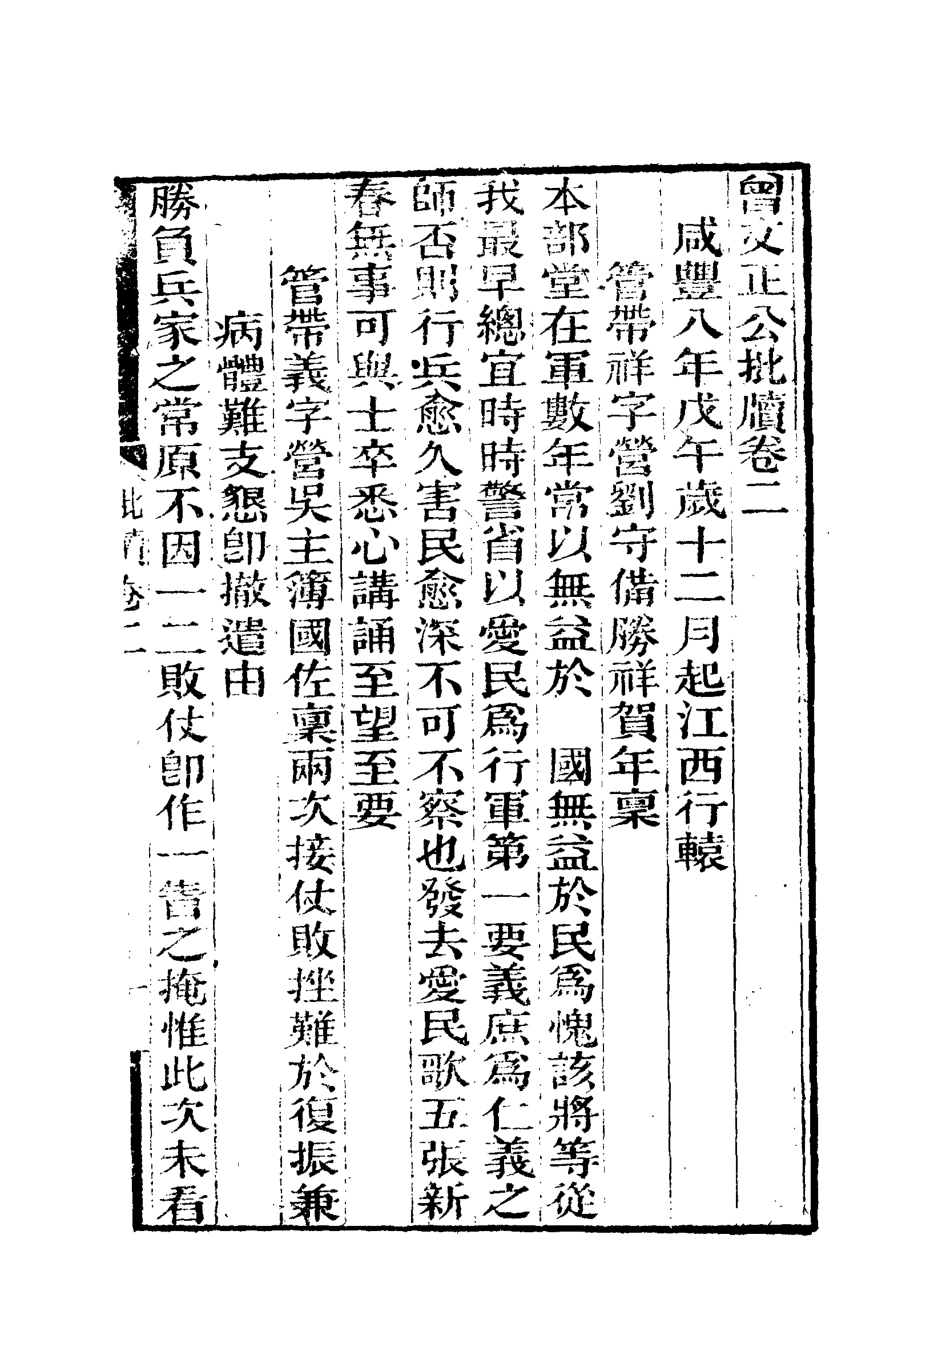 曾文正公批牘卷二
咸豐八年戊午歲十二月起江西行轅
管帶祥字營劉守備勝祥賀年稟
本部堂在軍數年常以無益於　國無益於民爲愧該將等從
我最早總宜時時警省以愛民爲行軍第一要義庶爲仁義之
師否則行兵愈久害民愈深不可不察也發去愛民歌五張新
春無事可與士卒悉心講誦至望至要
管帶義字營吳主簿國佐稟兩次接仗敗挫難於復振兼
病體難支懇卽撤遣由
勝負兵家之常原不因一二敗仗卽作一眚之掩惟此次未看
批牘卷二
一